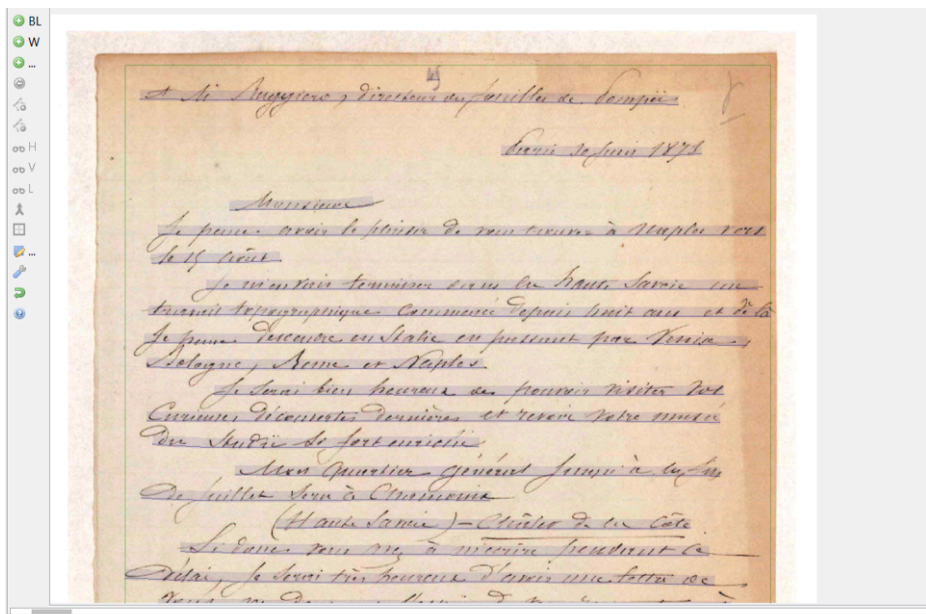 BL
W
...
H
V
L
...
A Mr Ruggiero, directeur des fouilles de Pompéï
Paris 30 juin 1878
Monsieur
Je pense avoir le plaisir de vous trouver à Naples vers
le 15 Août.
Je m'en vais terminer dans la haute Savoie un
travail topographique commencé depuis huit ans et de là
Je pense descendre en Italie en passant par Venise,
Bologne, Rome et Naples.
Je serai bien heureux de pouvoir visiter vos
Curieuses découvertes dernières et revoir votre musée
du Studii si fort enrichi
Mon quartier général jusqu'à la fin
de juillet sera à Chamonix
(Haute Savoie) – Châlet de la Côte
Si donc vous avez à m'écrire pendant ce
Délai, Je serai très heureux d'avoir une lettre de